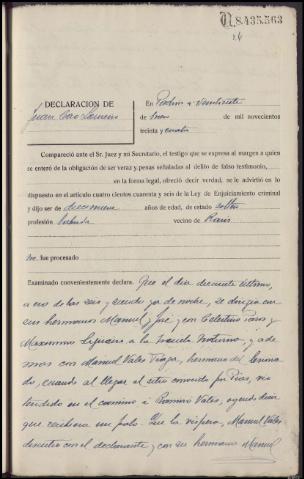 N.8.435.563
DECLARACIÓN DE
Juan
En Padrón a veintisiete
de de mil novecientos
treinta y cuatro
Compareció ante el Sr. Juez y mi Secretario, el testigo que se expresa al margen a quien
se enteró de la obligación de ser veraz y penas señaladas al delito de falso testimonio,
en la forma legal, ofreció decir verdad, se le advirtió en lo
dispuesto en el artículo cuatro cientos cuarenta y seis de la Ley de Enjuiciamiento criminal
y dijo ser de diecinueve años de edad, de estado soltero
profesión vecino de
No fue procesado
Examinado convenientemente declara. Que el día diecisiete último,
a eso de las seis y siendo ya de noche, se dirigía con
sus hermanos Manuel y José y con Celestino
Maximino a la Escuela Nocturna, y ade
mas con Manuel Vales hermano del
do, cuando al llegar al sitio conocido por vió
tendido en el camino á Vales, oyendo decir
que con un palo. Que la víspera, Manuel Vales
discutió con el declarante, y con su hermano Manuel